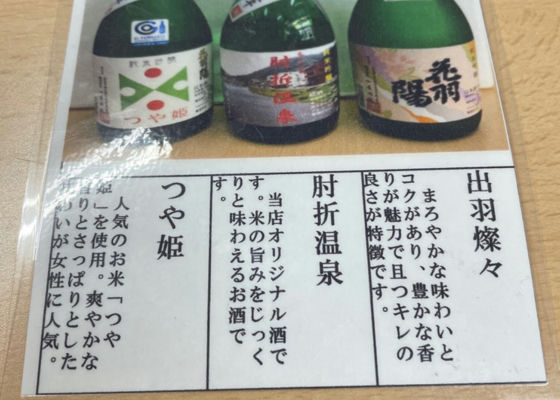 つや姫
肘折温泉
花羽陽
出羽燦々
まろやかな味わいと
コクがあり、豊かな香
りが魅力で且つキレの
良さが特徴です。
肘折温泉
当店オリジナル酒で
す。米の旨みをじっく
りと味わえるお酒で
す。
つや姫
人気のお米「つや
姫」を使用。爽やかな
香りとさっぱりとした
味わいが女性に人気。